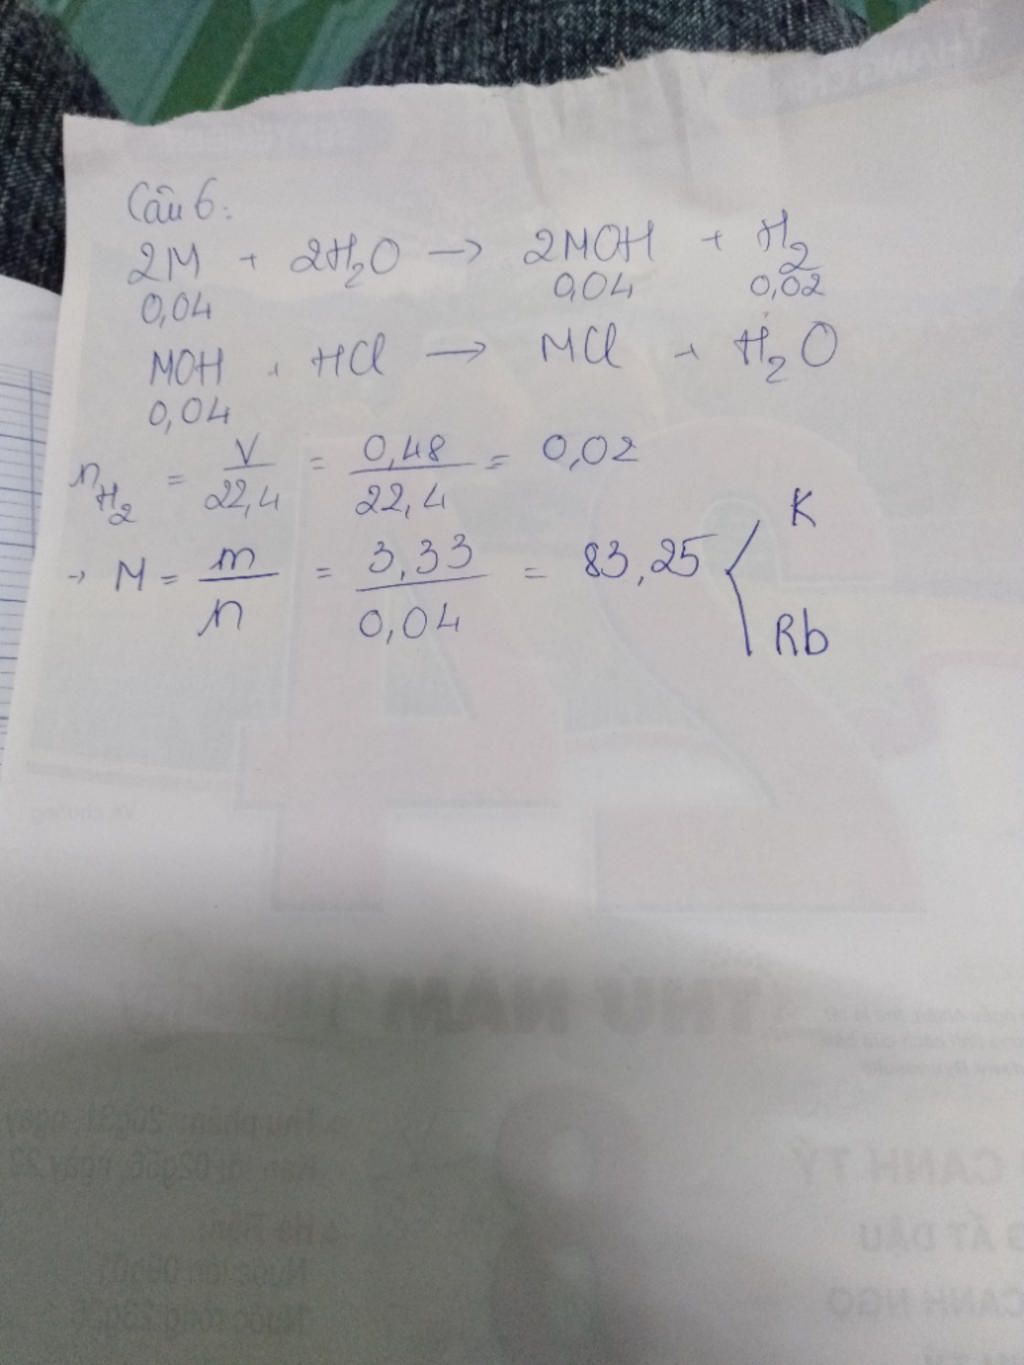 Câu 6:
2M + 2H₂O → 2MOH + H₂
0,04 0,04 0,02
MOH + HCl → MCl + H₂O
0,04
n_H₂ = V/22,4 = 0,48/22,4 = 0,02
→ M = m/n = 3,33/0,04 = 83,25 < K
Rb